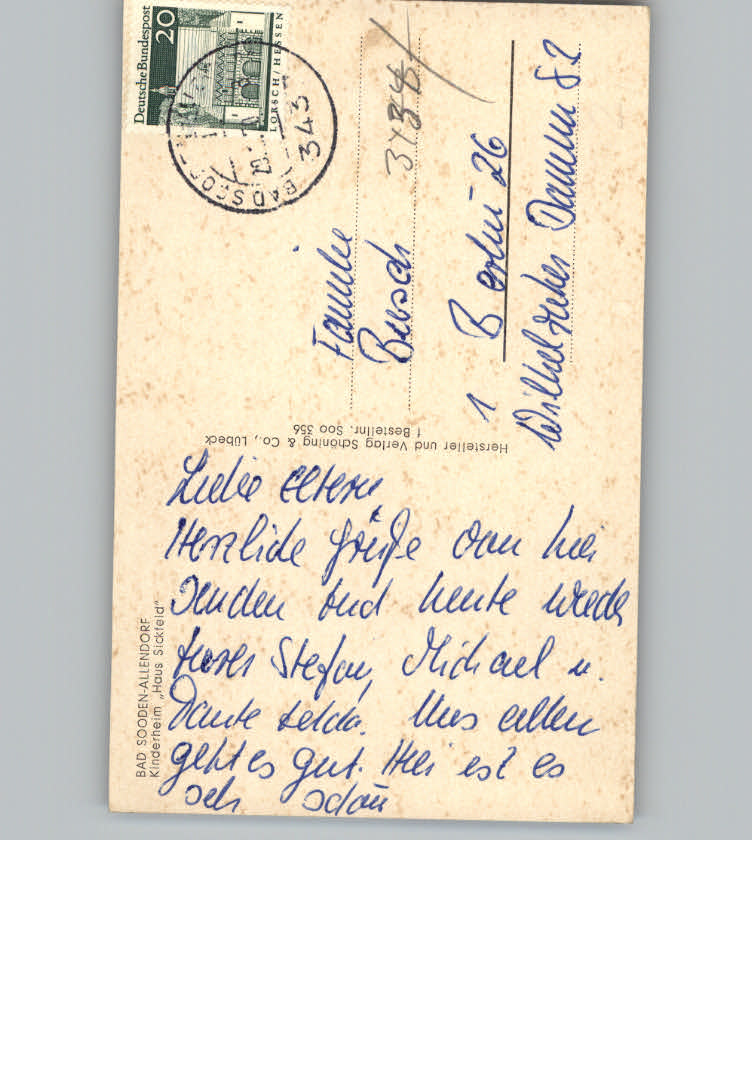 Deutsche Bundespost
20
LORSCH/HESSEN
343
Familie
Busch
1 Berlin 26
Wilhelmsruher Damm 82
Hersteller und Verlag Schöning & Co., Lübeck
Bestellnr. Soo 356
BAD SOODEN-ALLENDORF
Kinderheim „Haus Sickfeld"
Liebe Eltern
Herzliche Grüße von hier
senden Euch heute wieder
Stefan, Michael u.
Tante Uns allen
geht es gut. Hier ist es
sehr schön